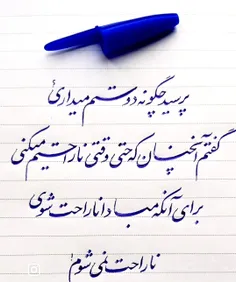 پرسید چگونه دوستم میداری؟
گفتم آنچنان که حتی وقتی ناراحتم میکنی
برای آنکه مبادا ناراحت شوی
ناراحت نمی شوم